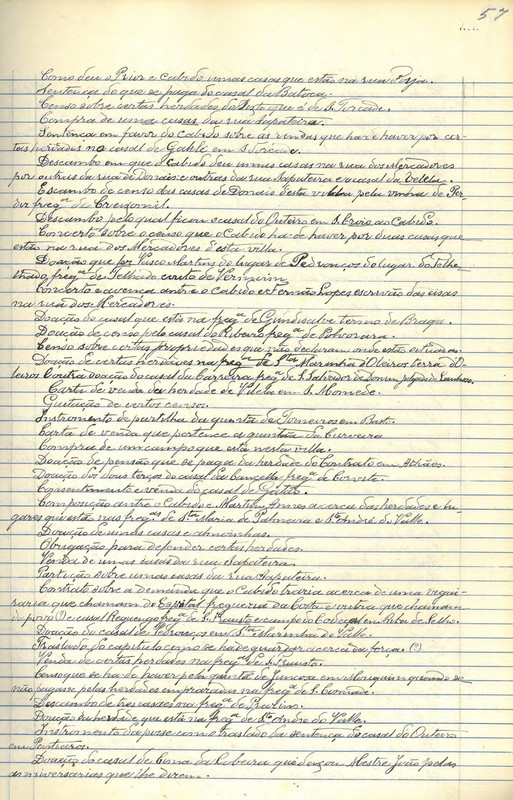 57
Como deu o Prior e Cabido umas casas que estão na rua
Sentença do que se paga do casal da Batoca.
Censo sobre certas herdades do que é de S. Torcade.
Compra de uma casas da rua Sapateira.
Sentença em favor do Cabido sobre as rendas que ha de haver por cer-
tas herdades no casal de em S. Torcade.
Descambo em que o Cabido deu umas casas na rua dos Mercadores
por outras da rua de Donais e outras da rua Sapateira e casal da
Escambo de censo das casas de Donais desta villa pela vinha de Per-
freg.ª de Creixomil.
Descambo pelo qual ficou o casal do Outeiro em S. ao Cabido.
Concerto sobre o censo que o Cabido ha de haver por duas casas que
estão na rua dos Mercadores d'esta villa.
Doação que fez Vasco Martins do lugar de Pedronços do lugar do
freg.ª de Telhado couto de Vermuim
Concerto e avença entre o Cabido e Fernão Lopes escrivão das casas
na rua dos Mercadores.
Doação do casal que está na freg.ª de Gondisalve termo de Braga.
Doação de censo pelo casal do Ribeiro freg.ª de Polvoreira.
Censo sobre certas propriedades mas não declaram onde estão situadas.
Doação de certas herdades na freg.ª de S.ta Marinha d'Oleiros terra d'O-
leiros Contra doação do casal da Carreira freg.ª de S. Salvador de
Carta de venda da herdade de Vilela em S. Momede.
Quitação de certos censos.
Instromento de partilha da quinta de Torneiros em Basto.
Carta de venda que pertence a quintã da Curveira
Compra de um campo que está nesta villa.
Doação de pensão que se paga da herdade do Contrato em Athães.
Doação dos dous terços do casal da Cancella freg.ª de Corvite.
Consentimento e venda do casal de Gatão.
Composição entre o Cabido e Martim Annes acerca das herdades e lu-
gares que estão nas freg.as de S.ta Maria de Palmeira e S.to André do Valle.
Doação de umas casas e almoinhas.
Obrigação para defender certas herdades.
Venda de umas casas da rua Sapateira.
Partição sobre umas casas da rua Sapateira.
Contrato sobre a demanda que o Cabido trazia acerca de uma
que chamam do Espital freguezia da Costa e outra que chamam
do povo (?) e casal Reguengo freg.ª de S. Fausto e campo do Codeçoso em Riba de Selho.
Doação do casal de Pedroços em S.ta Marinha do Valle.
Traslado do capitulo como se ha de guardar acerca da força. (?)
Venda de certas herdades na freg.ª de S. Fausto.
Censo que se ha de haver pela quinta de Juncosa em quando se
não pagasse pelas herdades emprazadas na freg.ª de S. Comade.
Descambo de tres casaes na freg.ª de
Doação da herdade que está na freg.ª de S.to André do Valle.
Instromento da posse com o traslado da sentença do casal do Outeiro
em Penteeiros.
Doação do casal de Cima da Cobeira que deixou Mestre João pelos
anniversarios que lhe dizem.